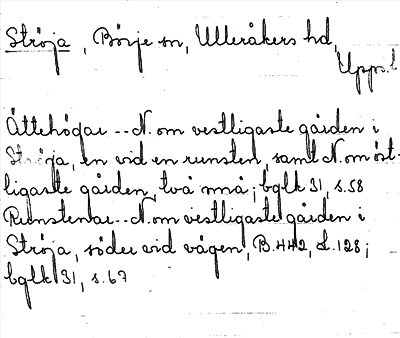 Ströja, Börje sn, Ulleråkers hd,
Upps. l
Ättehögar -- N. om vestligaste gården i
Ströja, en vid en runsten, samt N. om öst-
ligaste gården, två små; bglk 31, s. 58
Runstenar -- N. om vestligaste gården i
Ströja, söder vid vägen, B. 442, L. 128;
bglk 31, s. 67